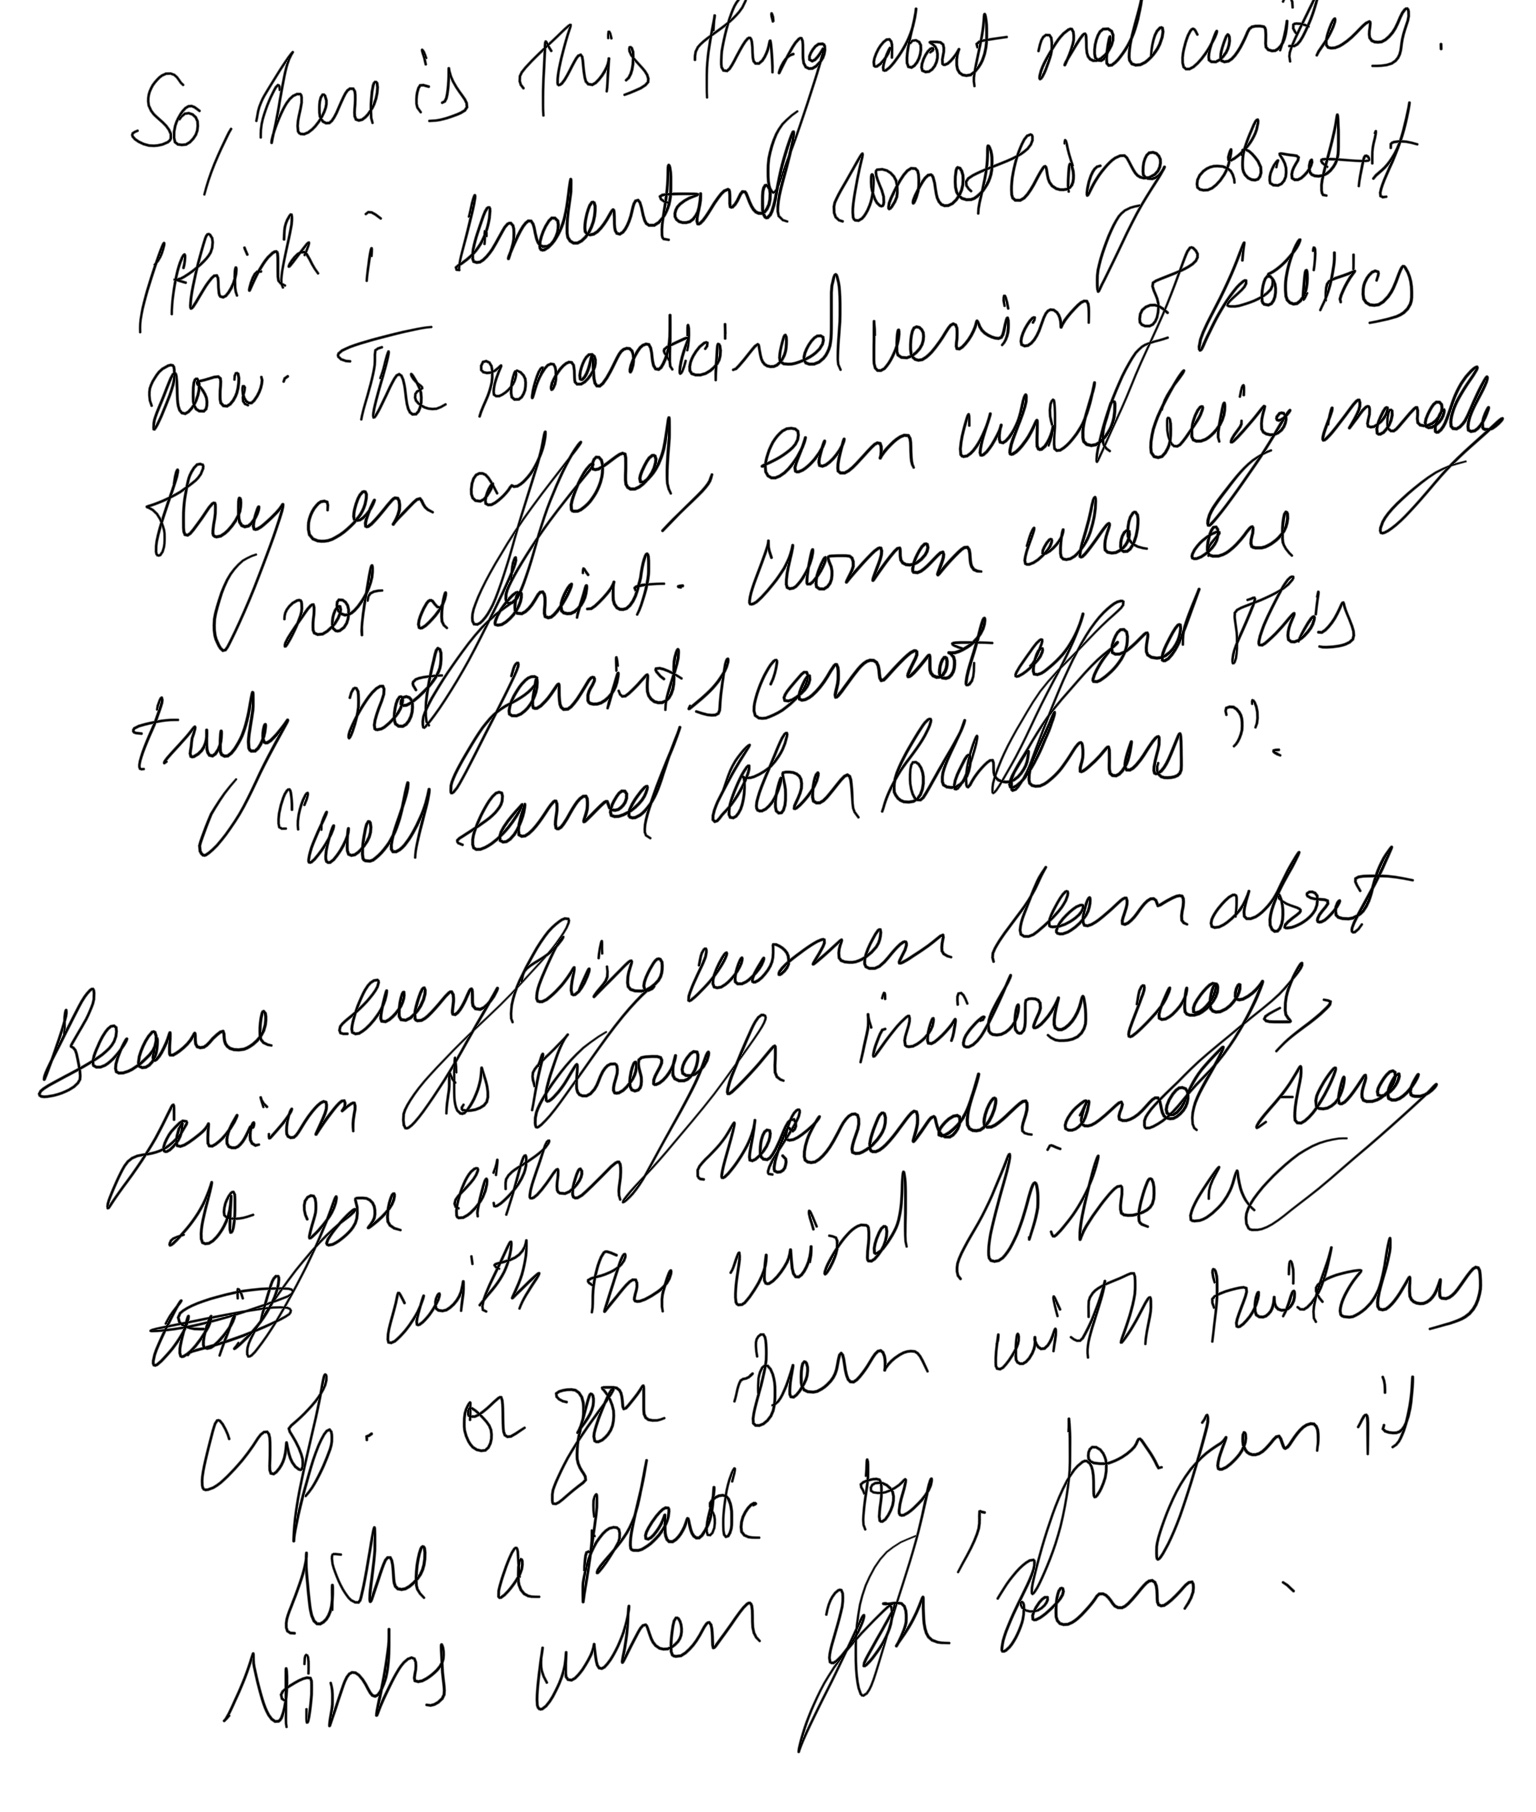 So, there is this thing about male writers.
I think i understand something about it
now. The romanticised version of politics
they can afford, even while being morally
not a fascist. Women who are
truly not fascists cannot afford this
"well earned colour blindness".
Because everything women learn about
fascism is through insidous ways,
you either surrender and sway
with the wind like a
crop. or you burn with twitches
like a plastic toy, for fun it
stinks when you burn.